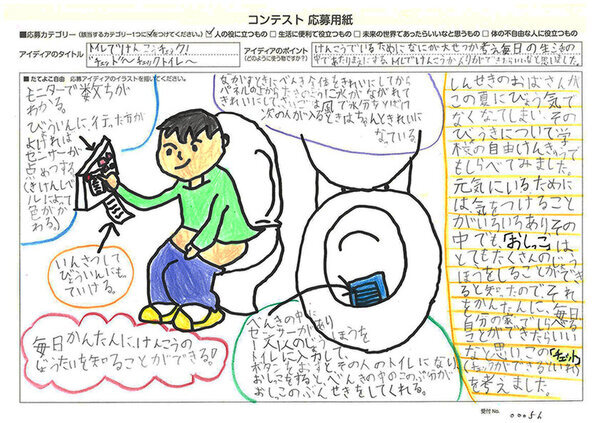 コンテスト 応募用紙
■応募カテゴリー(該当するカテゴリー1つに✓をつけてください)
✓人の役に立つもの □生活に便利なもの □未来の世界であったらいいなと思うもの □体の不自由な人に役立つもの
アイディアのタイトル
トイレでけんこうチェック!
アイディアのポイント
(どのように使う物ですか?)
■たてよこ自由 応募アイディアのイラストを描いてください。
モニターで数ちが
わかる。
びょういんに行った方が
よければ
センサーが
点めつする
(きけんレベ
ルによって
色がか
わる)
いんさつして
びょういんにもっ
ていける。
毎日かんたんにけんこうの
じょうたいを知ることができる!
ながすときにべんき全体をきれいにしてから
きれいにして、さいごは風で水分をとばす
次の人が入るときはちゃんときれいに
なっている。
べんきの中に
センサーがあり
一人一人のじょうほうを
トイレに入力して、
ボタンをおすとその人のトイレになり
おしっこをすると、べんきの中のこの部分が
おしっこのぶんせきをしてくれる。
しんせきのおばさんが
この夏にびょう気で
なくなってしまい、その
びょうきについて学
校の自由けんきゅうで
もしらべてみました。
元気にいるために
は気をつけること
がいろいろあり、その
中でも、「おしっこ」は
とてもたくさんのじょう
ほうをしることができ
ると知ったのでそれ
をかんたんに、毎日
自分の家でしらべる
ことができたらいい
なと思い、この「チェット」
(チェックができるトイレ)
を考えました。
受付No. 00056